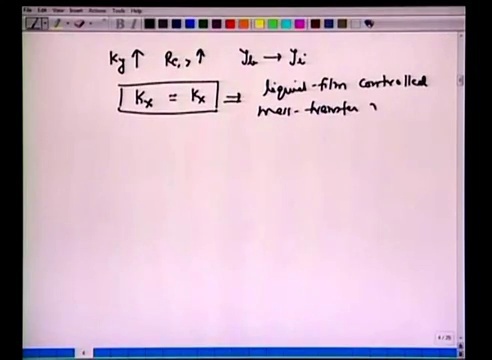 File Edit View Insert Actions Tools Help
B I
Ky ↑ Re,g ↑ yb → yi
Kx = kx ⇒ liquid-film controlled
mass-transfer
4/25